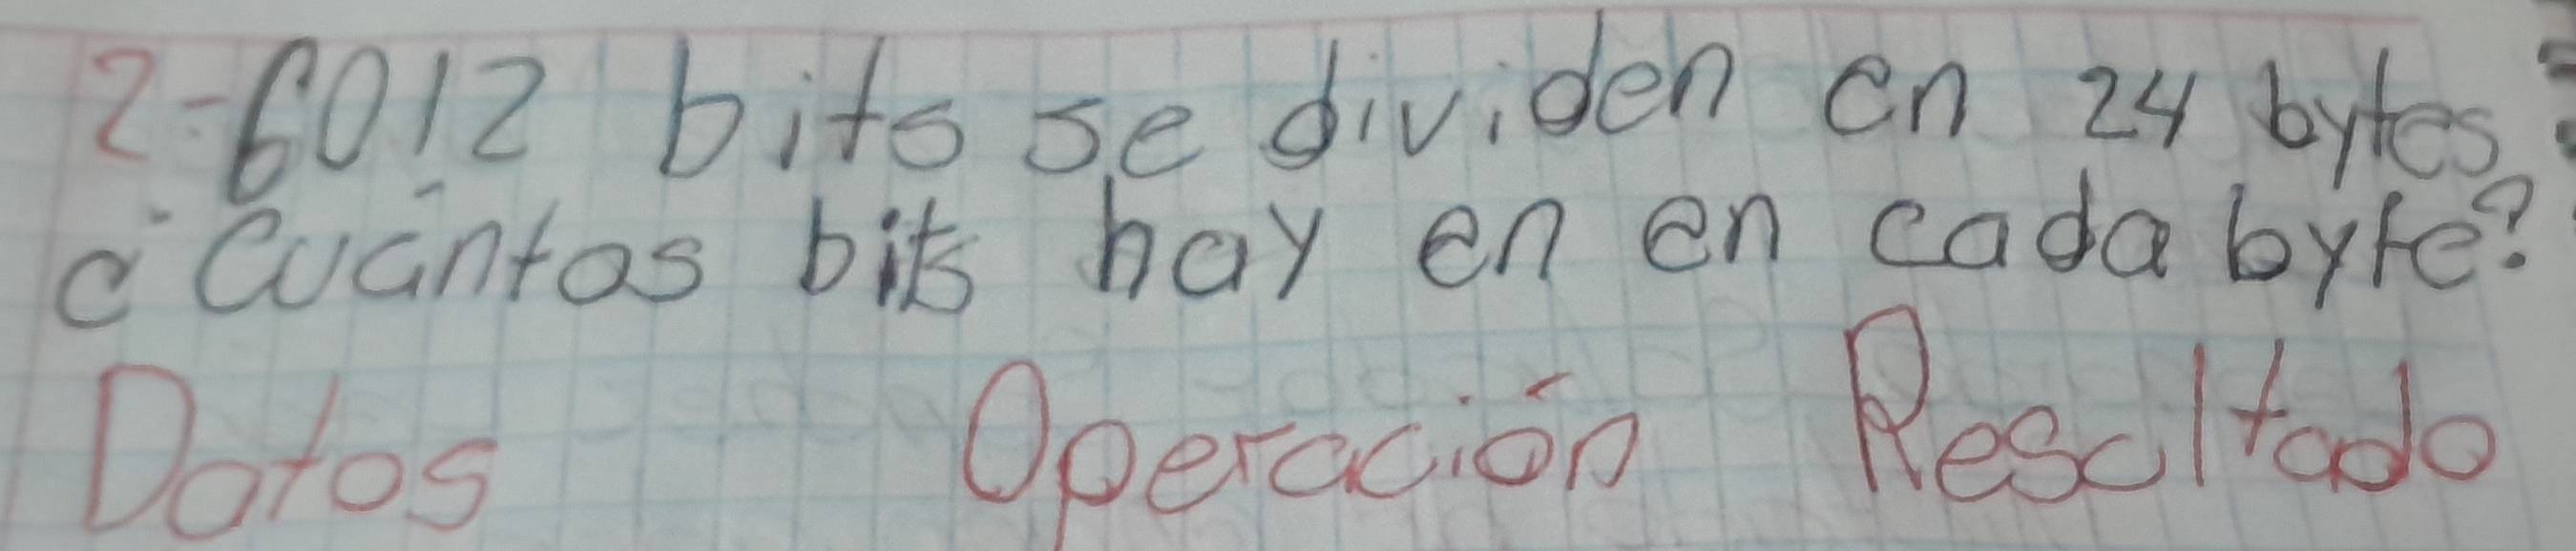 2-6012 bits se dividen en 24 bytes
¿Cuántos bits hay en en cada byte?
Datos Operación Resultado